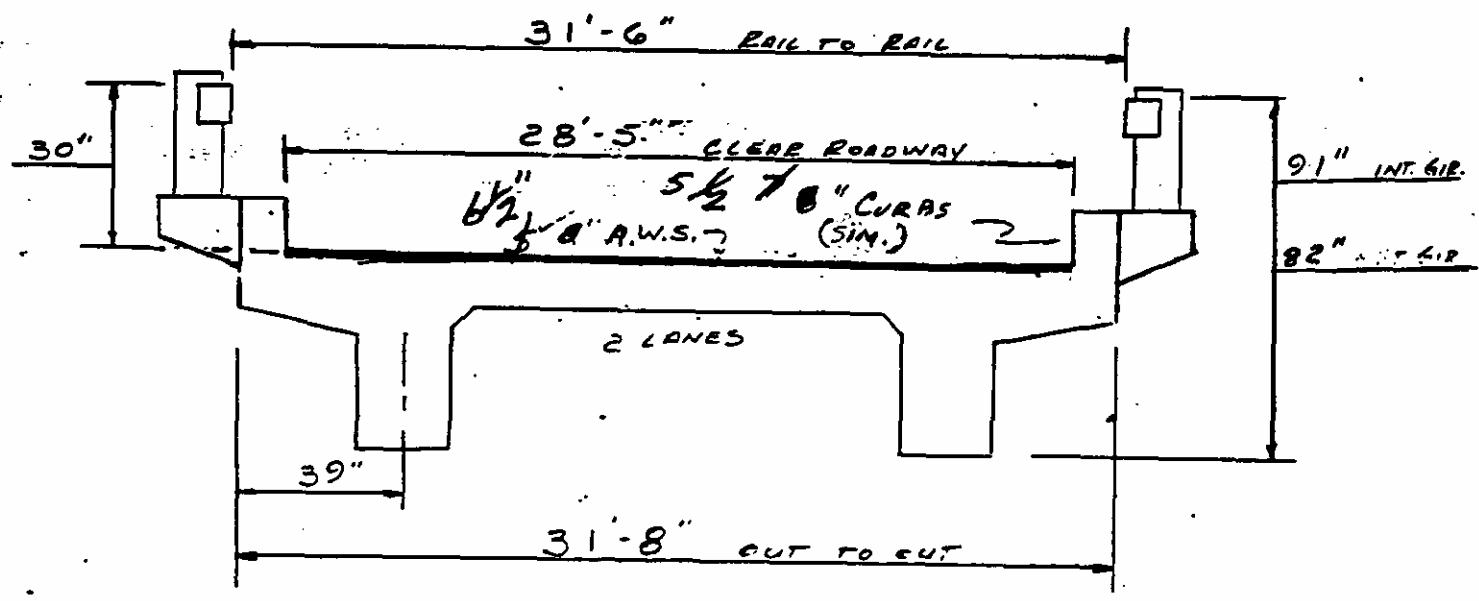 31'-6" RAIL TO RAIL
30"
28'-5" CLEAR ROADWAY
91" INT. GIR.
6 1/2" 5 1/2 7 8" CURBS
(SIM.)
A.W.S.
82" GIR
2 LANES
39"
31'-8" OUT TO OUT